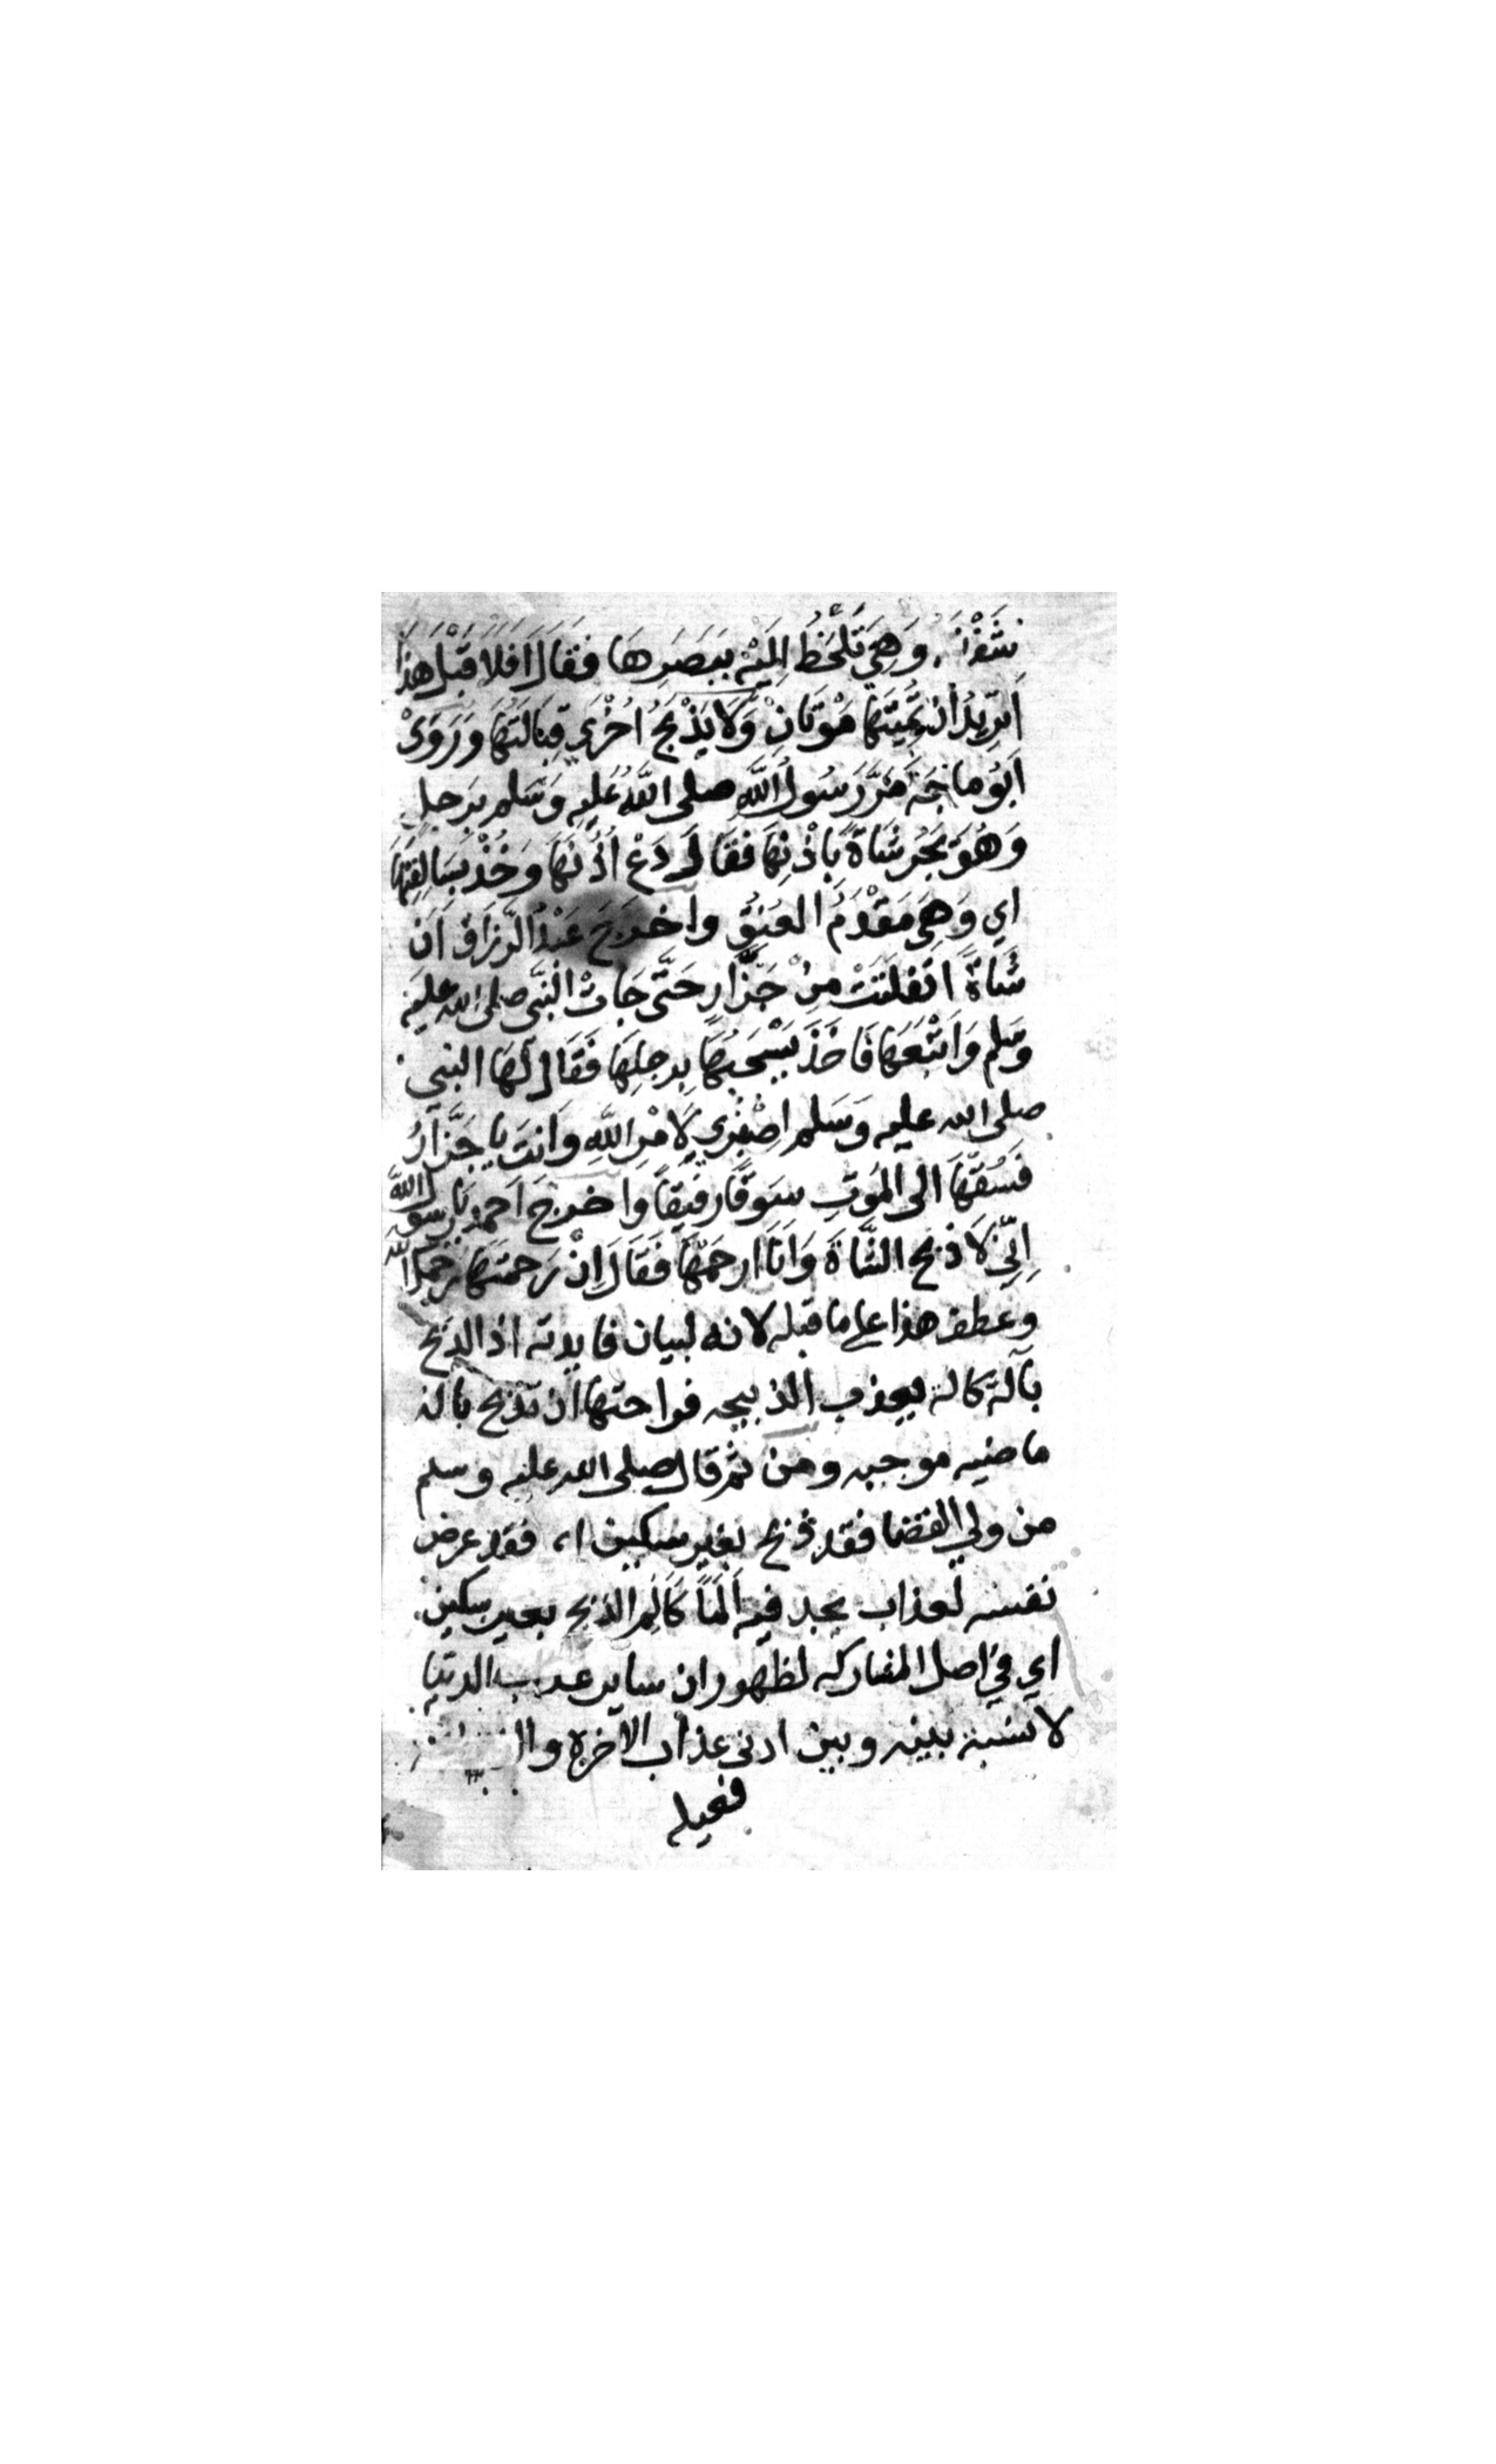 شَفْرَ. وَهِيَ تَلْحَظُ اِلَيْهِ بِبَصَرِهَا فَقَالَ اَفَلَا قَبْلَ هَذَا
اَتُرِيدُ اَنْ تُمِيتَهَا مَوْتَانِ وَلَا يَذْبَحُ اُخْرَى قِبَالَتَهَا وَرَوَى
اَبُو مَاجَه مَرَّ رَسُولُ اللَّهِ صلى اللَّهُ عَلَيهِ وَسَلم بِرَجلٍ
وَهُوَ يَجُر شَاةً بِاُذْنِهَا فَقَالَ دَعْ اُذُنَهَا وَخُذْ بِسَالِفَتِهَا
اي وَهِيَ مَقْدَمُ العُنُقِ واخرَجَ عَبْدُ الرَّزَاق اَن
شَاةً اَنفَلَتَتْ مِنْ جَزَّارٍ حَتَّى جَاتْ النَّبَى صلى الله عليه
وَسَلم وَاتْبَعَهَا فَاخَذَ يَسْحَبُهَا بِرجلِهَا فَقَال لَهَا النبي
صلى الله عليه وَسَلم اِصْبِرِي لِاَمْرِ اللَّهِ وَاَنتَ يا جَزَّارُ
فَسُقْهَا الى المَوتِ سَوقًا رَفِيقًا واخرجَ اَحمد يَا رسول اللَّه
اِنِّي لَاَذبح الشَّاةَ وَاَنَا ارحَمُهَا فَقَالَ اِنْ رَحمتَهَا رَحِمَكَ الله
وعطف هذا على ما قبله لانه لبيان فايدته اذ الذبح
بآلة كاله يعذب الذبيحه فراحتها ان تذبح بالة
ماضيه موجبه ومن ثم قال صلى الله عليه وسلم
من ولي القضا فقد ذبح بغير سكين اي فقد عرض
نفسه لعذاب يجد فيه اَلَمًا كَاَلم الذبح بغير سكين
اي في اصل المشاركه لظهور ان ساير عذاب الدنيا
لا نسبة بينه وبين ادنى عذاب الاخرة